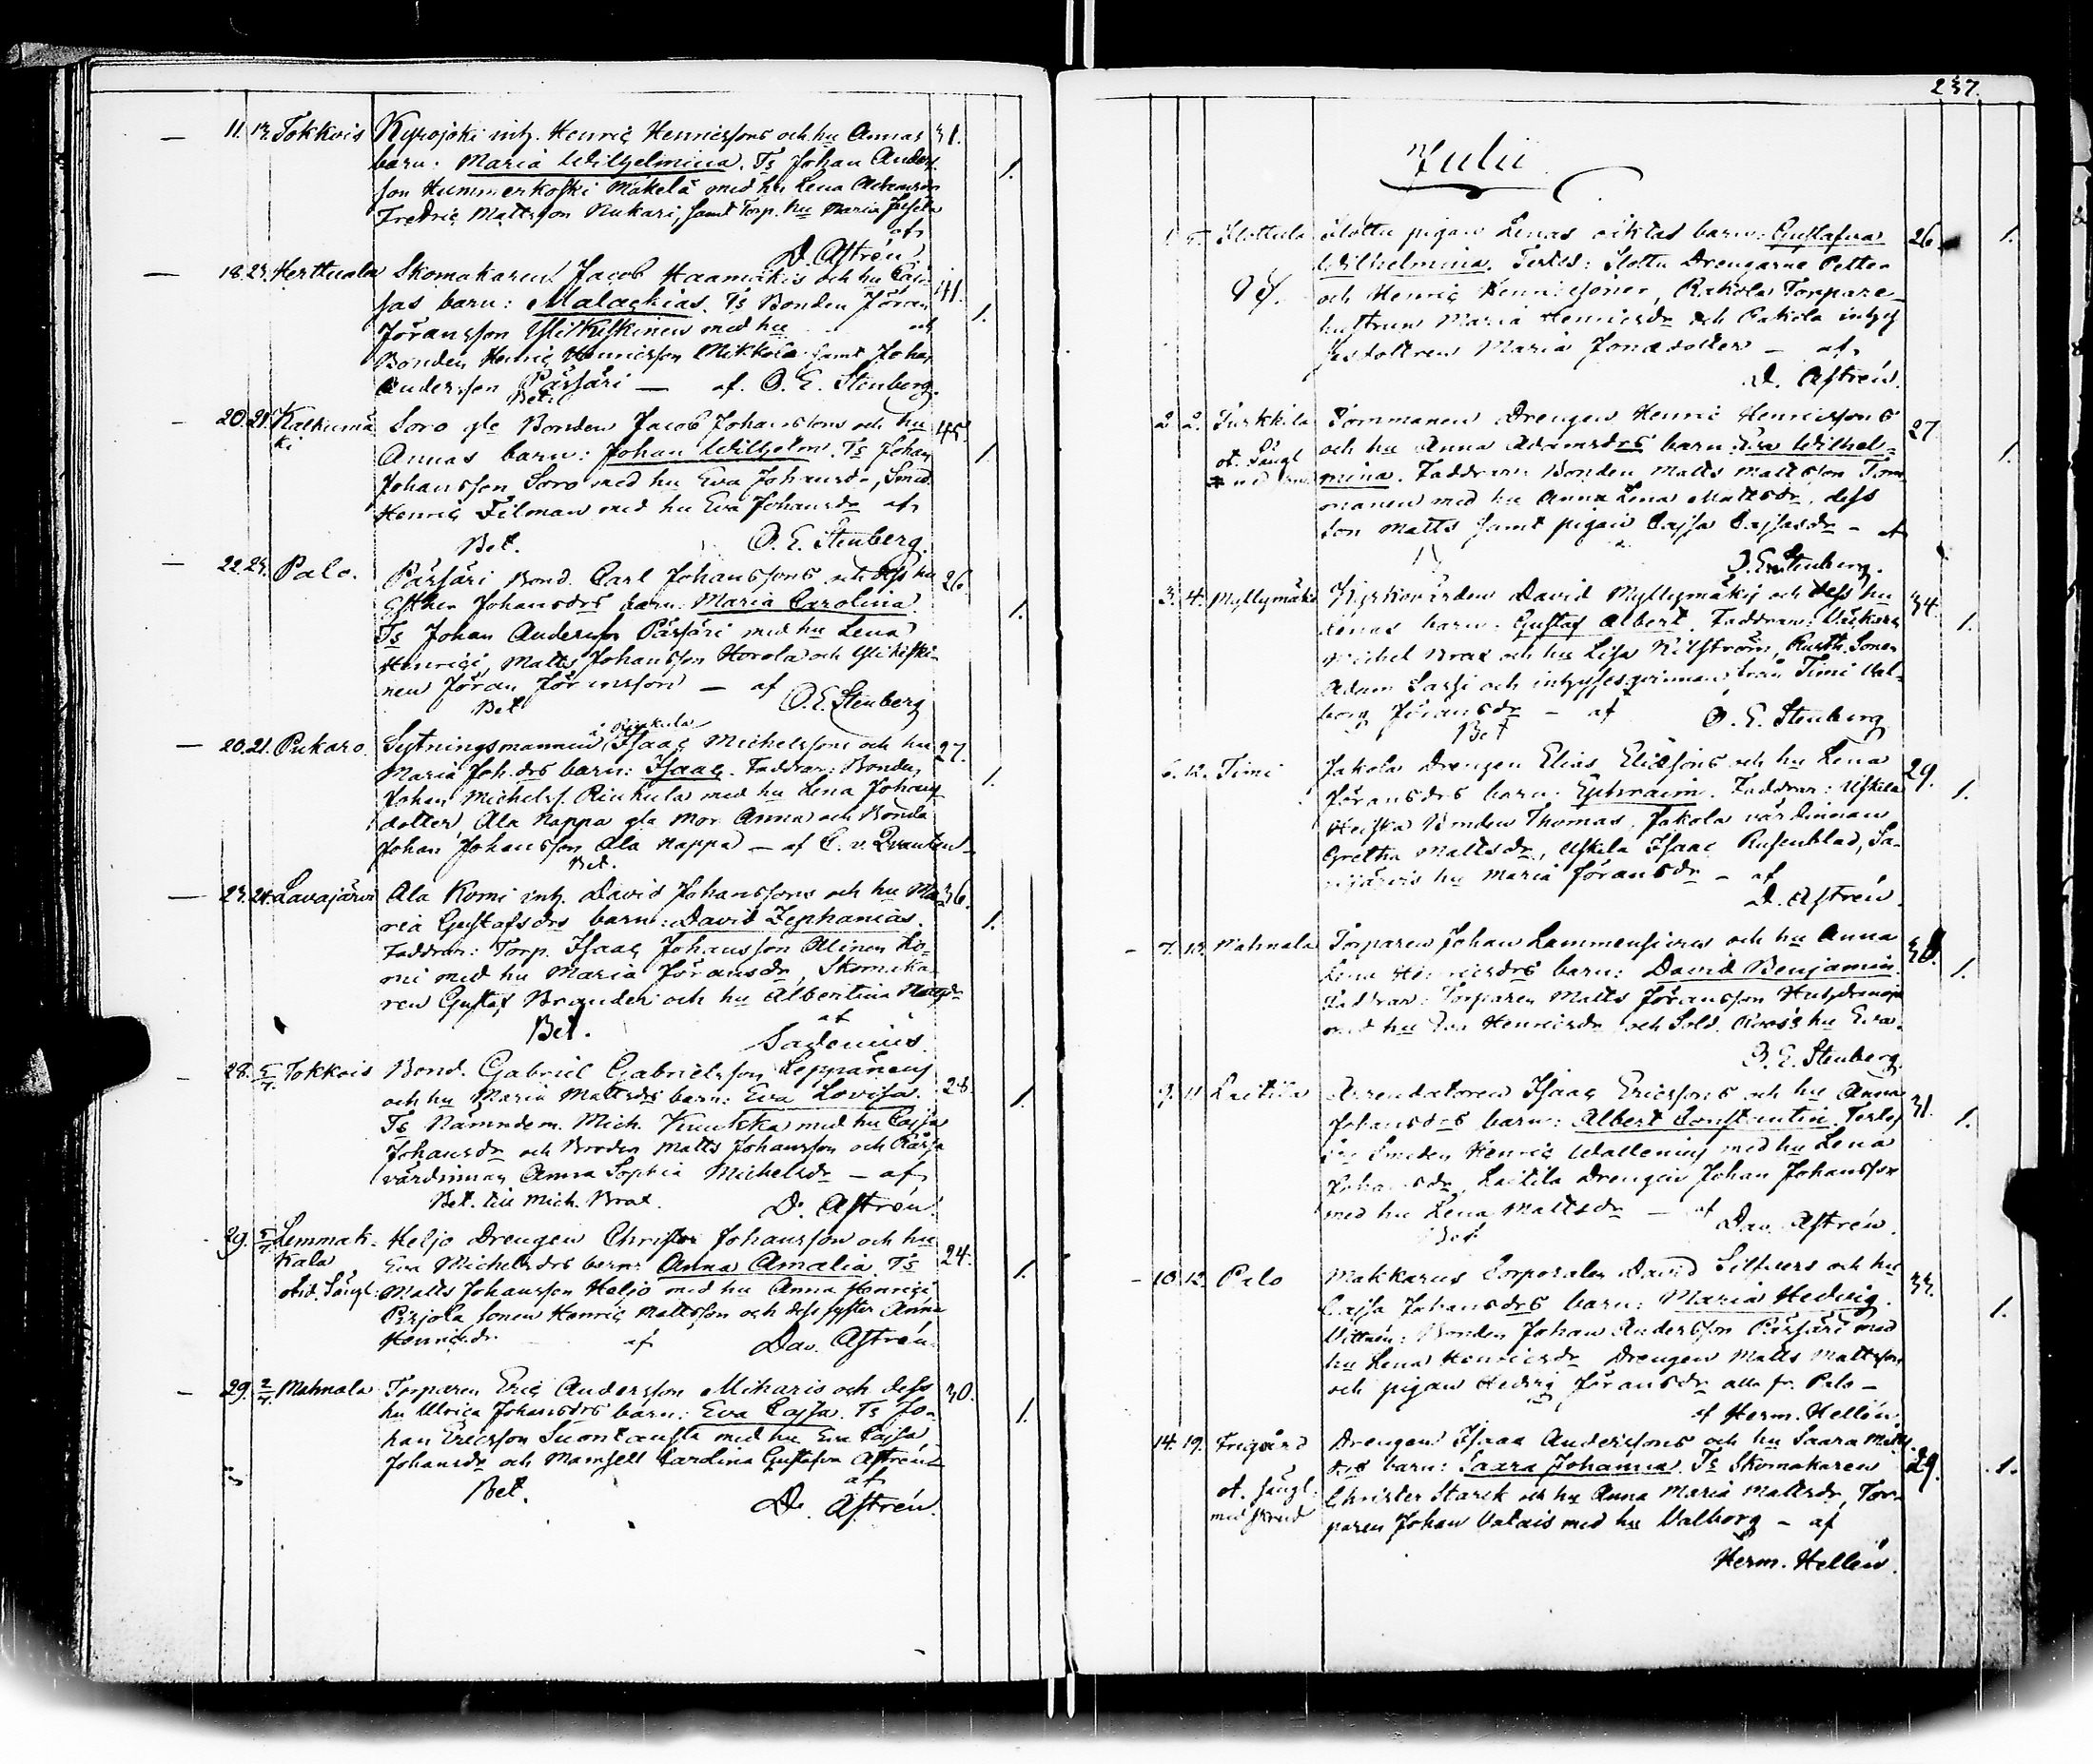 11. 13. Tokkois Kyrojoki inh. Henric Henricssons och hu Annas 31.
barn: Maria Wilhelmina. Ts Johan Anders-
son Hummerkoski Mäkelä med hu Lena Adamsdr
Fredric Mattsson Nukari, samt Torp. hu Maria Josefsdr 1.
af
D. Astrén.
18. 23. Herttuala Skomakaren Jacob Haamäkis och hu Caj-
sas barn: Malackias. Ts Bonden Jöran 41.
Jöransson Ylikiskinen med hu och 1.
Bonden Henric Henricsson Mikkola samt Johan
Andersson Pärsäri — af. O. E. Stenberg.
Bet.
20. 21. Kalkumä Soro gle Bonden Jacob Johanssons och hu 45.
ki Annas barn: Johan Wilhelm. Ts Johan 1.
Johansson Soro med hu Eva Johansdr, Smed.
Henric Filman med hu Eva Johansdr af
Bet. O. E. Stenberg.
22. 23. Palo. Pärsäri Bond. Carl Johanssons och dess hu 26
Esther Johansdrs barn: Maria Carolina.
Ts Johan Andersson Pärsäri med hu Lena 1.
Henrici, Matts Johansson Horola och Ylikiski-
nen Jöran Jöransson — af
Bet O. E. Stenberg
20. 21. Pukaro. Sytningsmannen i Rinkula Isaac Michelssons och hu 27.
Maria Joh.drs barn: Isaac. Faddrar: Bonden
Johan Michelss. Rinkula med hu Lena Johans 1.
dotter, Ala Nappa gla Mor Anna och Bonden
Johan Johansson Ala Nappa — af C. v. Qvanten
Bet.
23. 24. Lavajärvi Ala Komi inh. David Johanssons och hu Ma- 36.
ria Gustafsdrs barn: David Zephanias. 1.
Faddrar: Torp. Isaac Johansson Alinen Ko-
mi med hu Maria Jöransdr, Skomaka
ren Gustaf Brander och hu Albertina
Bet. af
Sadenius.
28. 5/7 Tokkois Bond. Gabriel Gabrielsson Leppänens
och hu Maria Mattsdrs barn: Eva Lovisa. 28. 1.
Ts Nämndem. Mich. Kuukka med hu Cajsa
Johansdr och Bonden Matts Johansson och
värdinnan Anna Sophia Michelsdr — af
Bet. till Mich. Brax. D. Astrén.
29. 5/7 Lemmak- Heljo Drengen Christer Johansson och hu
kala Eva Michelsdrs barn: Anna Amalia. Ts 24. 1.
Matts Johansson Heljo med hu Anna Henrici
Pirjola sonen Henric Mattsson och dess syster Anna
Henricsdr. af Dav. Astrén.
29. 2/7 Mahnala Torparen Eric Andersson Miharis och dess 30.
hu Ulrica Johansdrs barn: Eva Cajsa. Ts Jo- 1.
han Ericsson Suontausta med hu Eva Cajsa
Johansdr och Mamsell Carolina Gustafva Astrén
Bet. af
D. Astrén.
237.
Julii
1. 5. Slottu pigan Lenas oäktas barn: Gustafva 26 1.
Wilhelmina. Testes: Slottu Drengarne Petter
Oä. och Henric Henricssoner, Rakola Torpare-
hustrun Maria Henricsdr och inhys
Maria Jonædotter — af
D. Astrén.
2. 2. Turkkila Tommanen Drengen Henric Henricssons
och hu Anna Adamsdrs barn: Eva Wilhel- 27 1.
mina. Faddrar: Bonden Matts Mattsson Tom-
manen med hu Anna Lena Mattsdr, dess
son Matts samt pigan Cajsa Cajsasdr — af
O. E. Stenberg.
3. 4. Myllymäki Kyrkovärden David Myllymäkis och dess hu
Lenas barn: Gustaf Albert. Faddrar: 34. 1.
Michel Brax och hu Lisa Kihlström, Rusth. Sonen
Adam Sassi och inhysesqvinnan från Timi Val-
borg Jöransdr — af
Bet O. E. Stenberg
6. 12. Timi Jakola Drengen Elias Eliæsons och hu Lena 29.
Jöransdrs barn: Ephraim. Faddrar: Uskela 1.
Heiska Bonden Thomas, Jakola värdinnan
Gretha Mattsdr, Uskela Isaac Rusenblad, Sa-
hu Maria Jöransdr — af
D. Astrén.
7. 13. Mahnala Torparen Johan Lammensivus och hu Anna 38.
Lena Henricsdrs barn: David Benjamin. 1.
Faddrar: Torparen Matts Jöransson
med hu Eva Henricsdr och Sold. Roos's hu Eva.
O. E. Stenberg.
9. 11 Laitila Arrendatoren Isaac Ericssons och hu Anna 31.
Johansdrs barn: Albert Constantin. Testes 1.
Smeden Henric Wallenius med hu Lena
Johansdr, Laitila Drengen Johan Johansson
med hu Lena Mattsdr — af
Bet Dav. Astrén.
10. 12. Palo Makkarus Corporalen David Silfvers och hu 33.
Cajsa Johansdrs barn: Maria Hedvig. 1.
Vittnen: Bonden Johan Andersson Pärsäri med
hu Lena Henricsdr, Drengen Matts Mattsson
och pigan Hedvig Jöransdr alla fr. Palo —
af Herm. Hellén.
14. 19. Frigård Drengen Isaac Anderssons och hu Saara Matts
drs barn: Saara Johanna. Ts Skomakaren 29. 1.
Christer Starck och hu Anna Maria Mattsdr, Tor-
paren Johan Vatais med hu Valborg — af
Herm. Hellén.